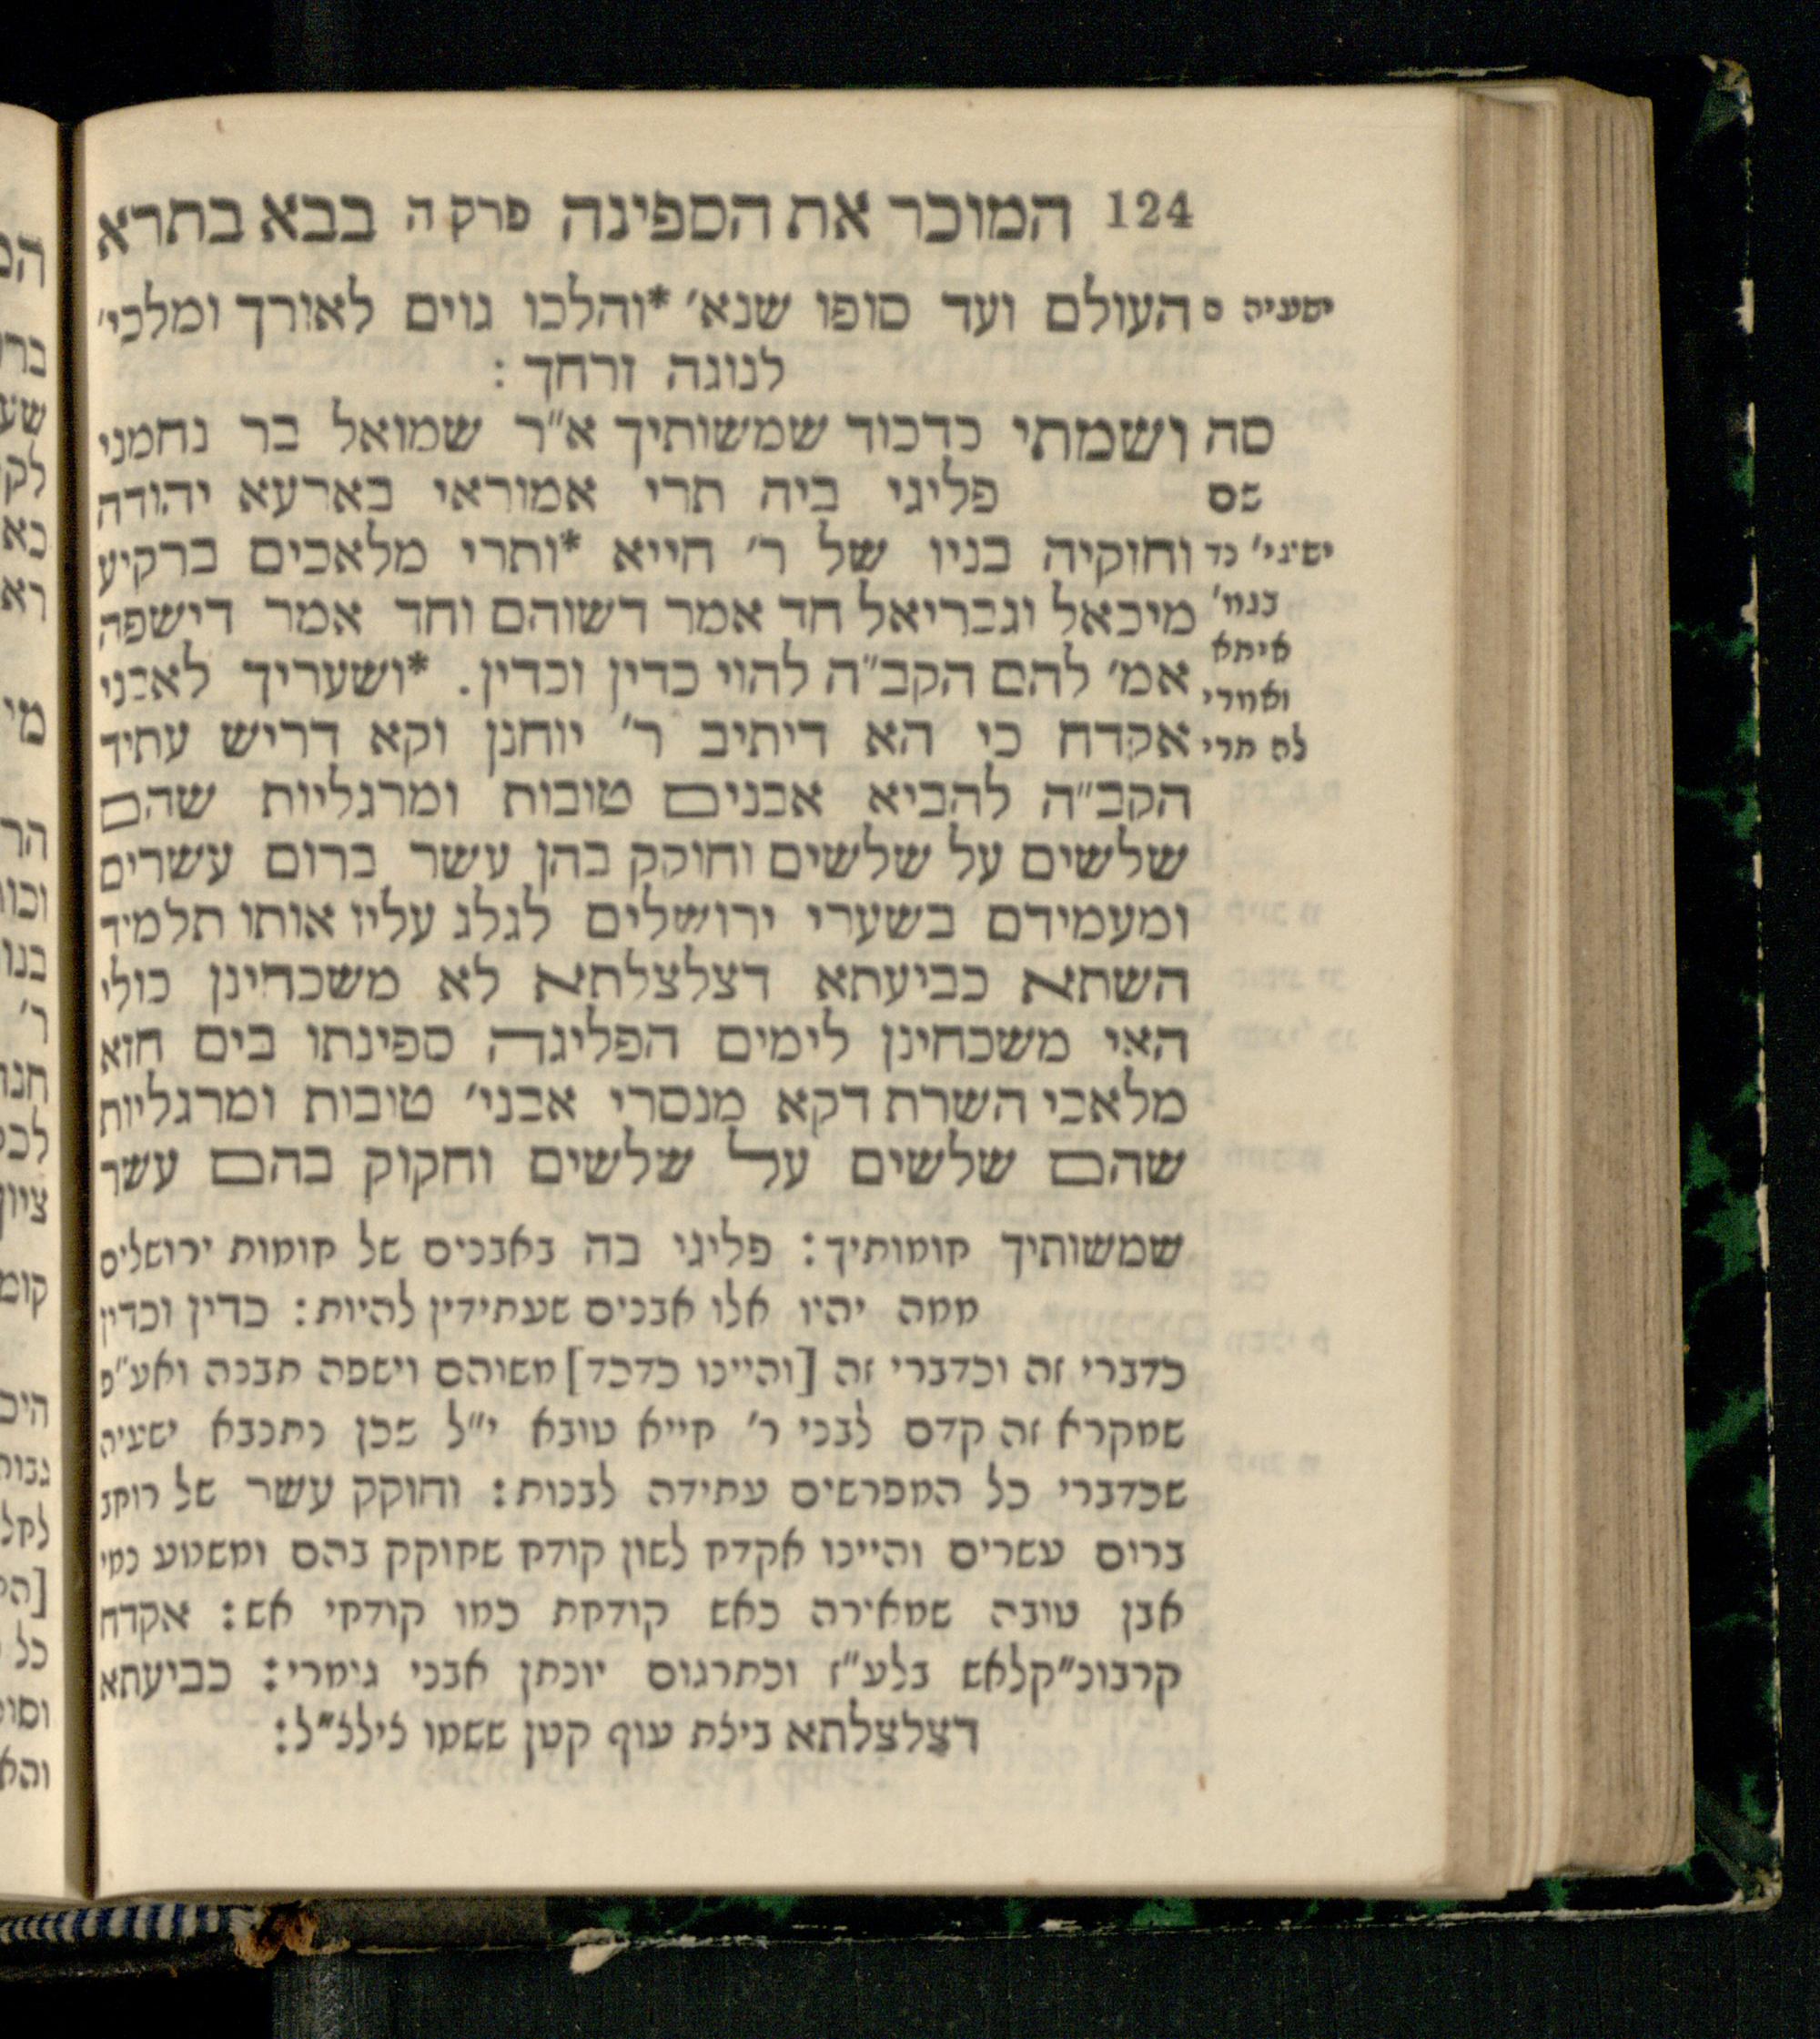 124 המוכר את הספינה פרק ה בבא בתרא
ישעיה ס העולם ועד סופו שנא׳ *והלכו גוים לאורך ומלכי׳
לנוגה זרחך :
סה ושמתי כדכוד שמשותיך א״ר שמואל בר נחמני
שם פליגי ביה תרי אמוראי בארעא יהודה
ישעי׳ נד וחזקיה בניו של ר׳ חייא *ותרי מלאכים ברקיע
בגמ׳ מיכאל וגבריאל חד אמר דשוהם וחד אמר דישפה
איתא
ואמרי אמ׳ להם הקב״ה להוי כדין וכדין. *ושעריך לאבני
לה תרי אקדח כי הא דיתיב ר׳ יוחנן וקא דריש עתיד
הקב״ה להביא אבנים טובות ומרגליות שהם
שלשים על שלשים וחוקק בהן עשר ברום עשרים
ומעמידם בשערי ירושלים לגלג עליו אותו תלמיד
השתא כביעתא דצלצלתא לא משכחינן כולי
האי משכחינן לימים הפליגה ספינתו בים חזא
מלאכי השרת דקא מנסרי אבני׳ טובות ומרגליות
שהם שלשים על שלשים וחקוק בהם עשר
שמשותיך חומותיך: פליגי בה באבנים של חומות ירושלים
ממה יהיו אלו אבנים שעתידין להיות: כדין וכדין
כדברי זה וכדברי זה [והיינו כדכד] משוהם וישפה תבנה ואע״פ
שמקרא זה קדם לבני ר׳ חייא טובא י״ל שכן נתנבא ישעיה
שכדברי כל המפרשים עתידה לבנות: וחוקק עשר של רוחב
ברום עשרים והיינו אקדח לשון קודח שחוקק בהם ומשמע נמי
אבן טובה שמאירה כאש קודחת כמו קודחי אש: אקדח
קרבונ״קלאש בלע״ז וכתרגום יונתן אבני גימרי: כביעתא
דצלצלתא ביצת עוף קטן ששמו צילצ״ל: